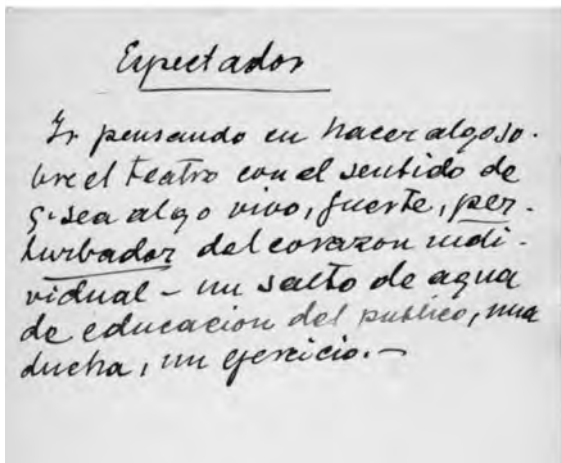 Espectador
Ir pensando en hacer algo so-
bre el teatro con el sentido de
q. sea algo vivo, fuerte, per-
turbador del corazon indi-
vidual – un salto de agua
de educacion del publico, una
ducha, un ejercicio.–